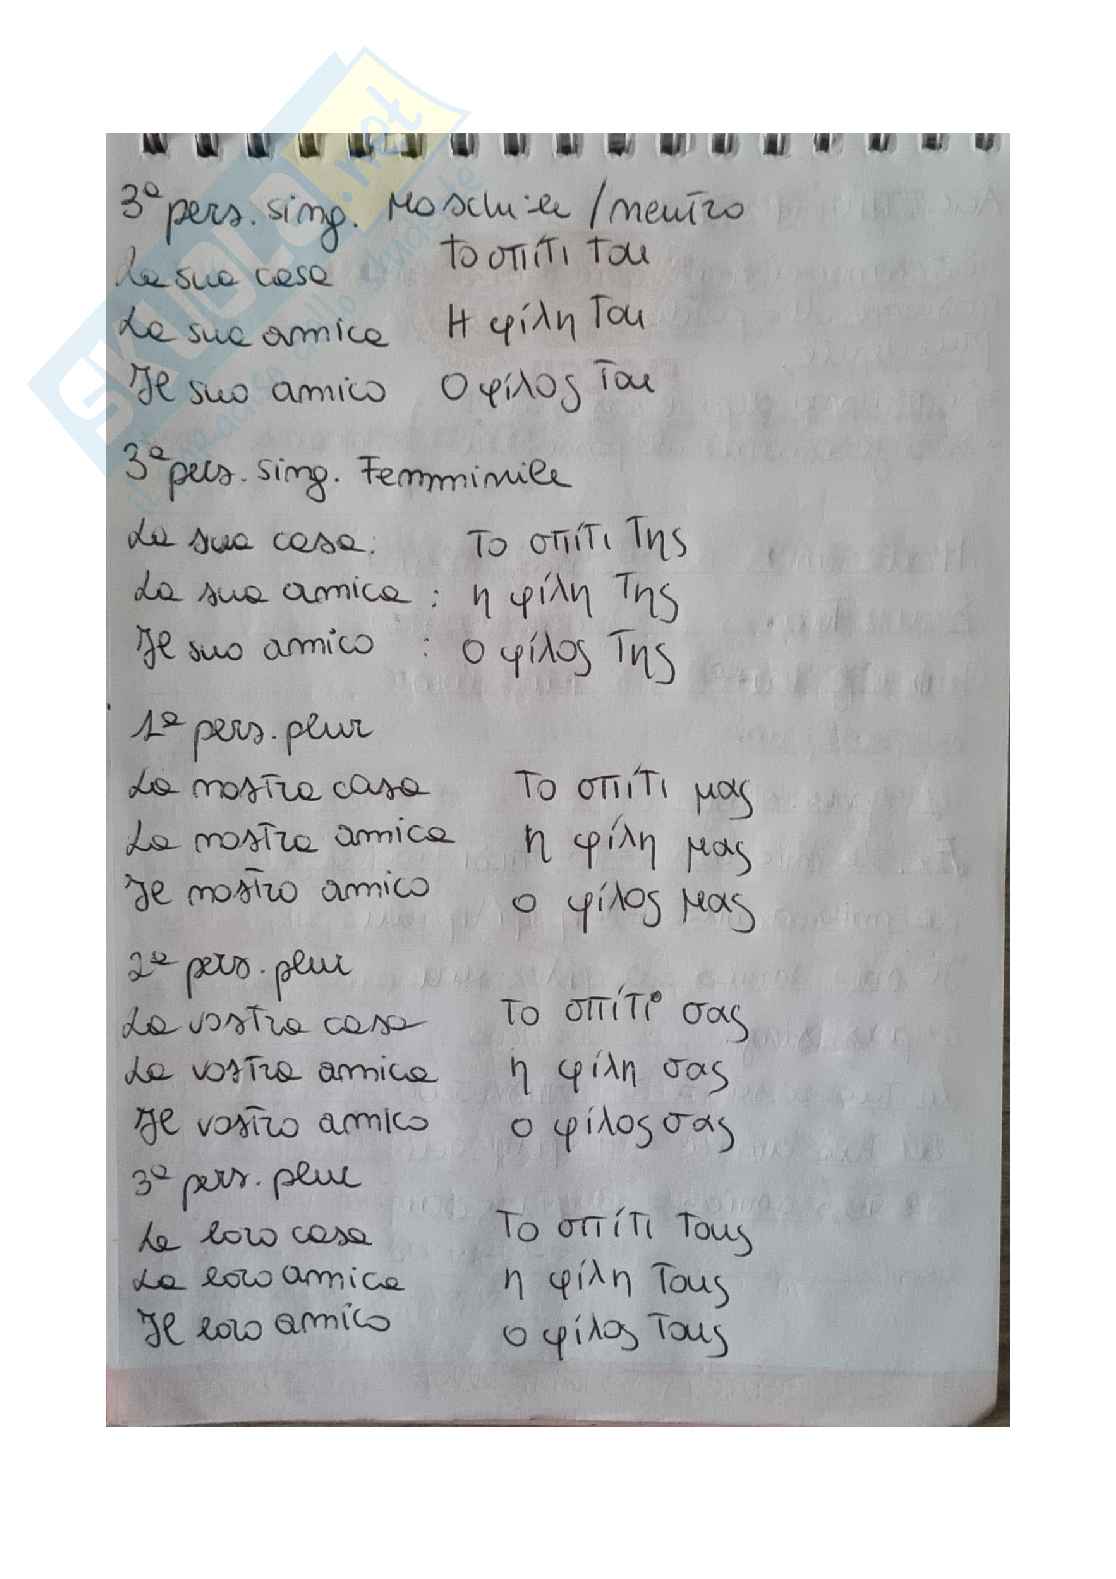 SKUOLA.net
3ª pers. sing. Maschile/neutro
La sua casa το σπίτι του
La sua amica Η φίλη του
Il suo amico Ο φίλος του
3ª pers. sing. Femminile
La sua casa: το σπίτι της
La sua amica: η φίλη της
Il suo amico: ο φίλος της
1ª pers. plur
La nostra casa το σπίτι μας
La nostra amica η φίλη μας
Il nostro amico ο φίλος μας
2ª pers. plur
La vostra casa το σπίτι σας
La vostra amica η φίλη σας
Il vostro amico ο φίλος σας
3ª pers. plur
La loro casa το σπίτι τους
La loro amica η φίλη τους
Il loro amico ο φίλος τους